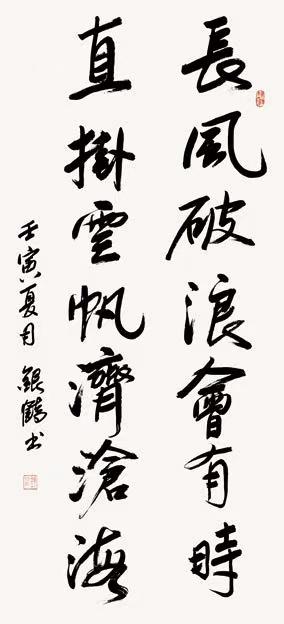 長風破浪會有時
直掛雲帆濟滄海
壬寅夏月 銀鶴书